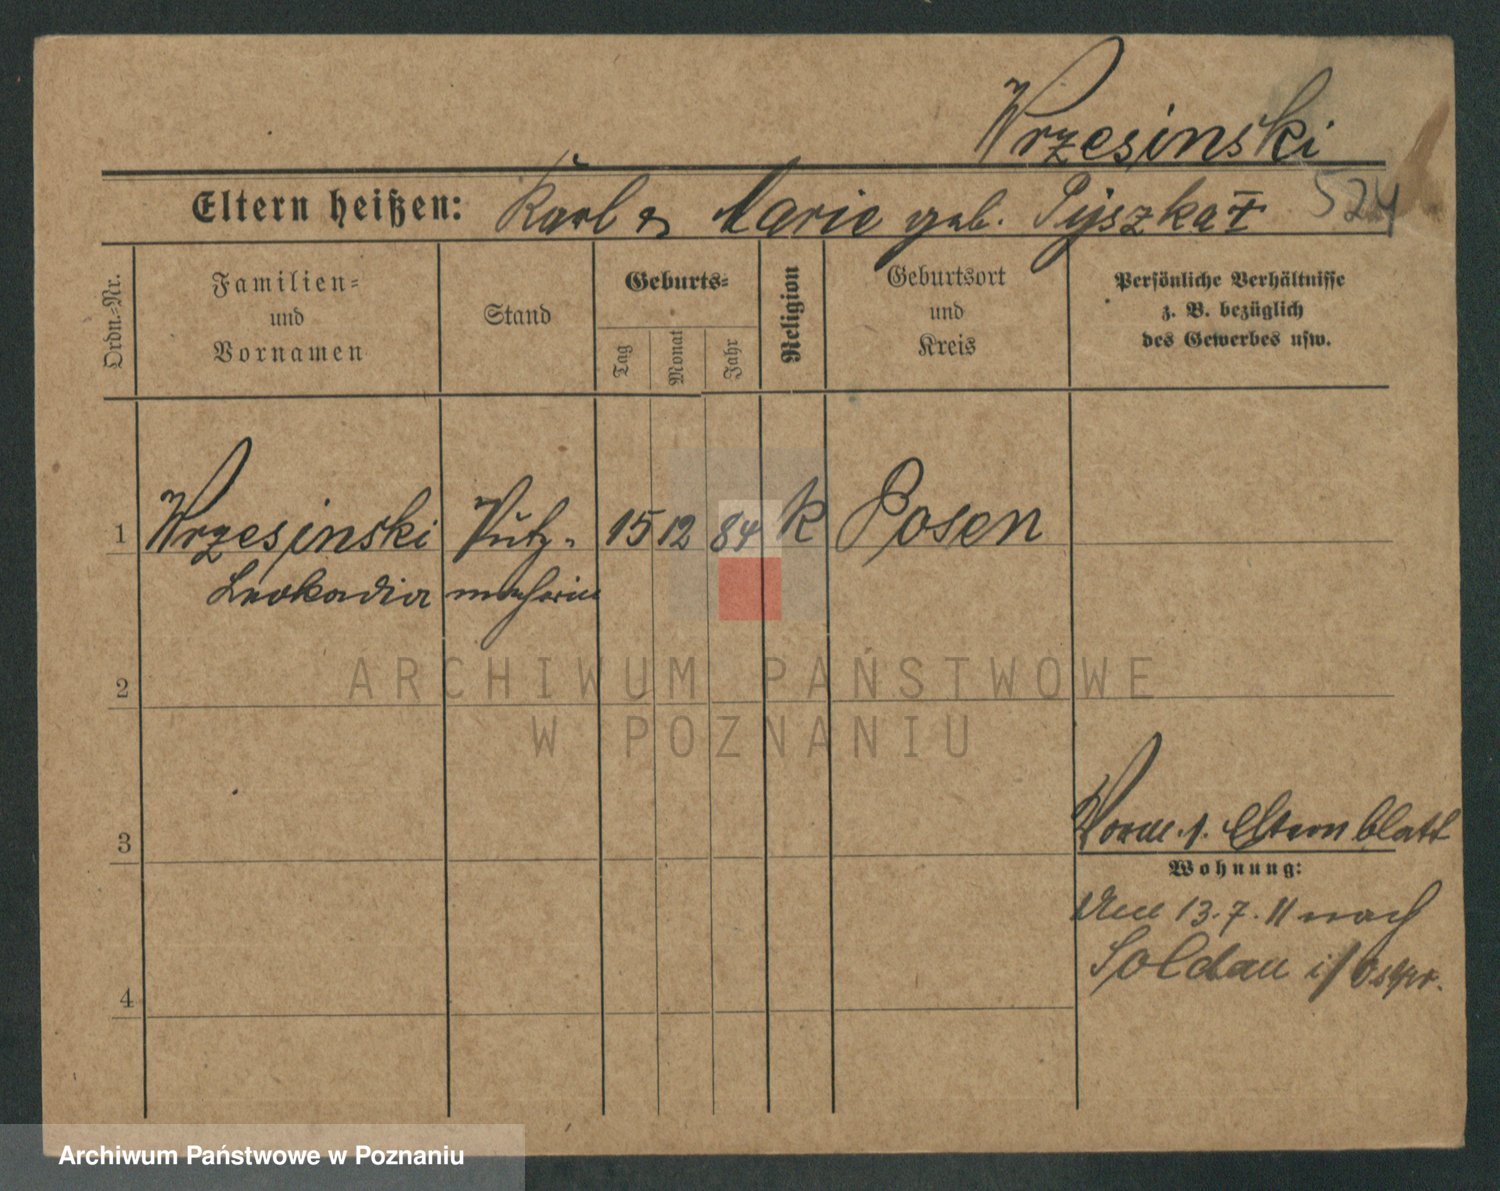 Wrzesinski
Eltern heißen: Karl & Marie geb. Pyszka I 524
Ordn.-Nr.
Familien-
und
Vornamen
Stand
Geburts-
Tag
Monat
Jahr
Religion
Geburtsort
und
Kreis
Persönliche Verhältnisse
z. B. bezüglich
des Gewerbes usw.
1 Wrzesinski Putz- 15 12 84 k Posen
Leokadia macherin
ARCHIWUM PAŃSTWOWE
W POZNANIU
2
3
4
Elternblatt
Wohnung:
13.7.11 nach
Soldau i/Ostpr.
Archiwum Państwowe w Poznaniu